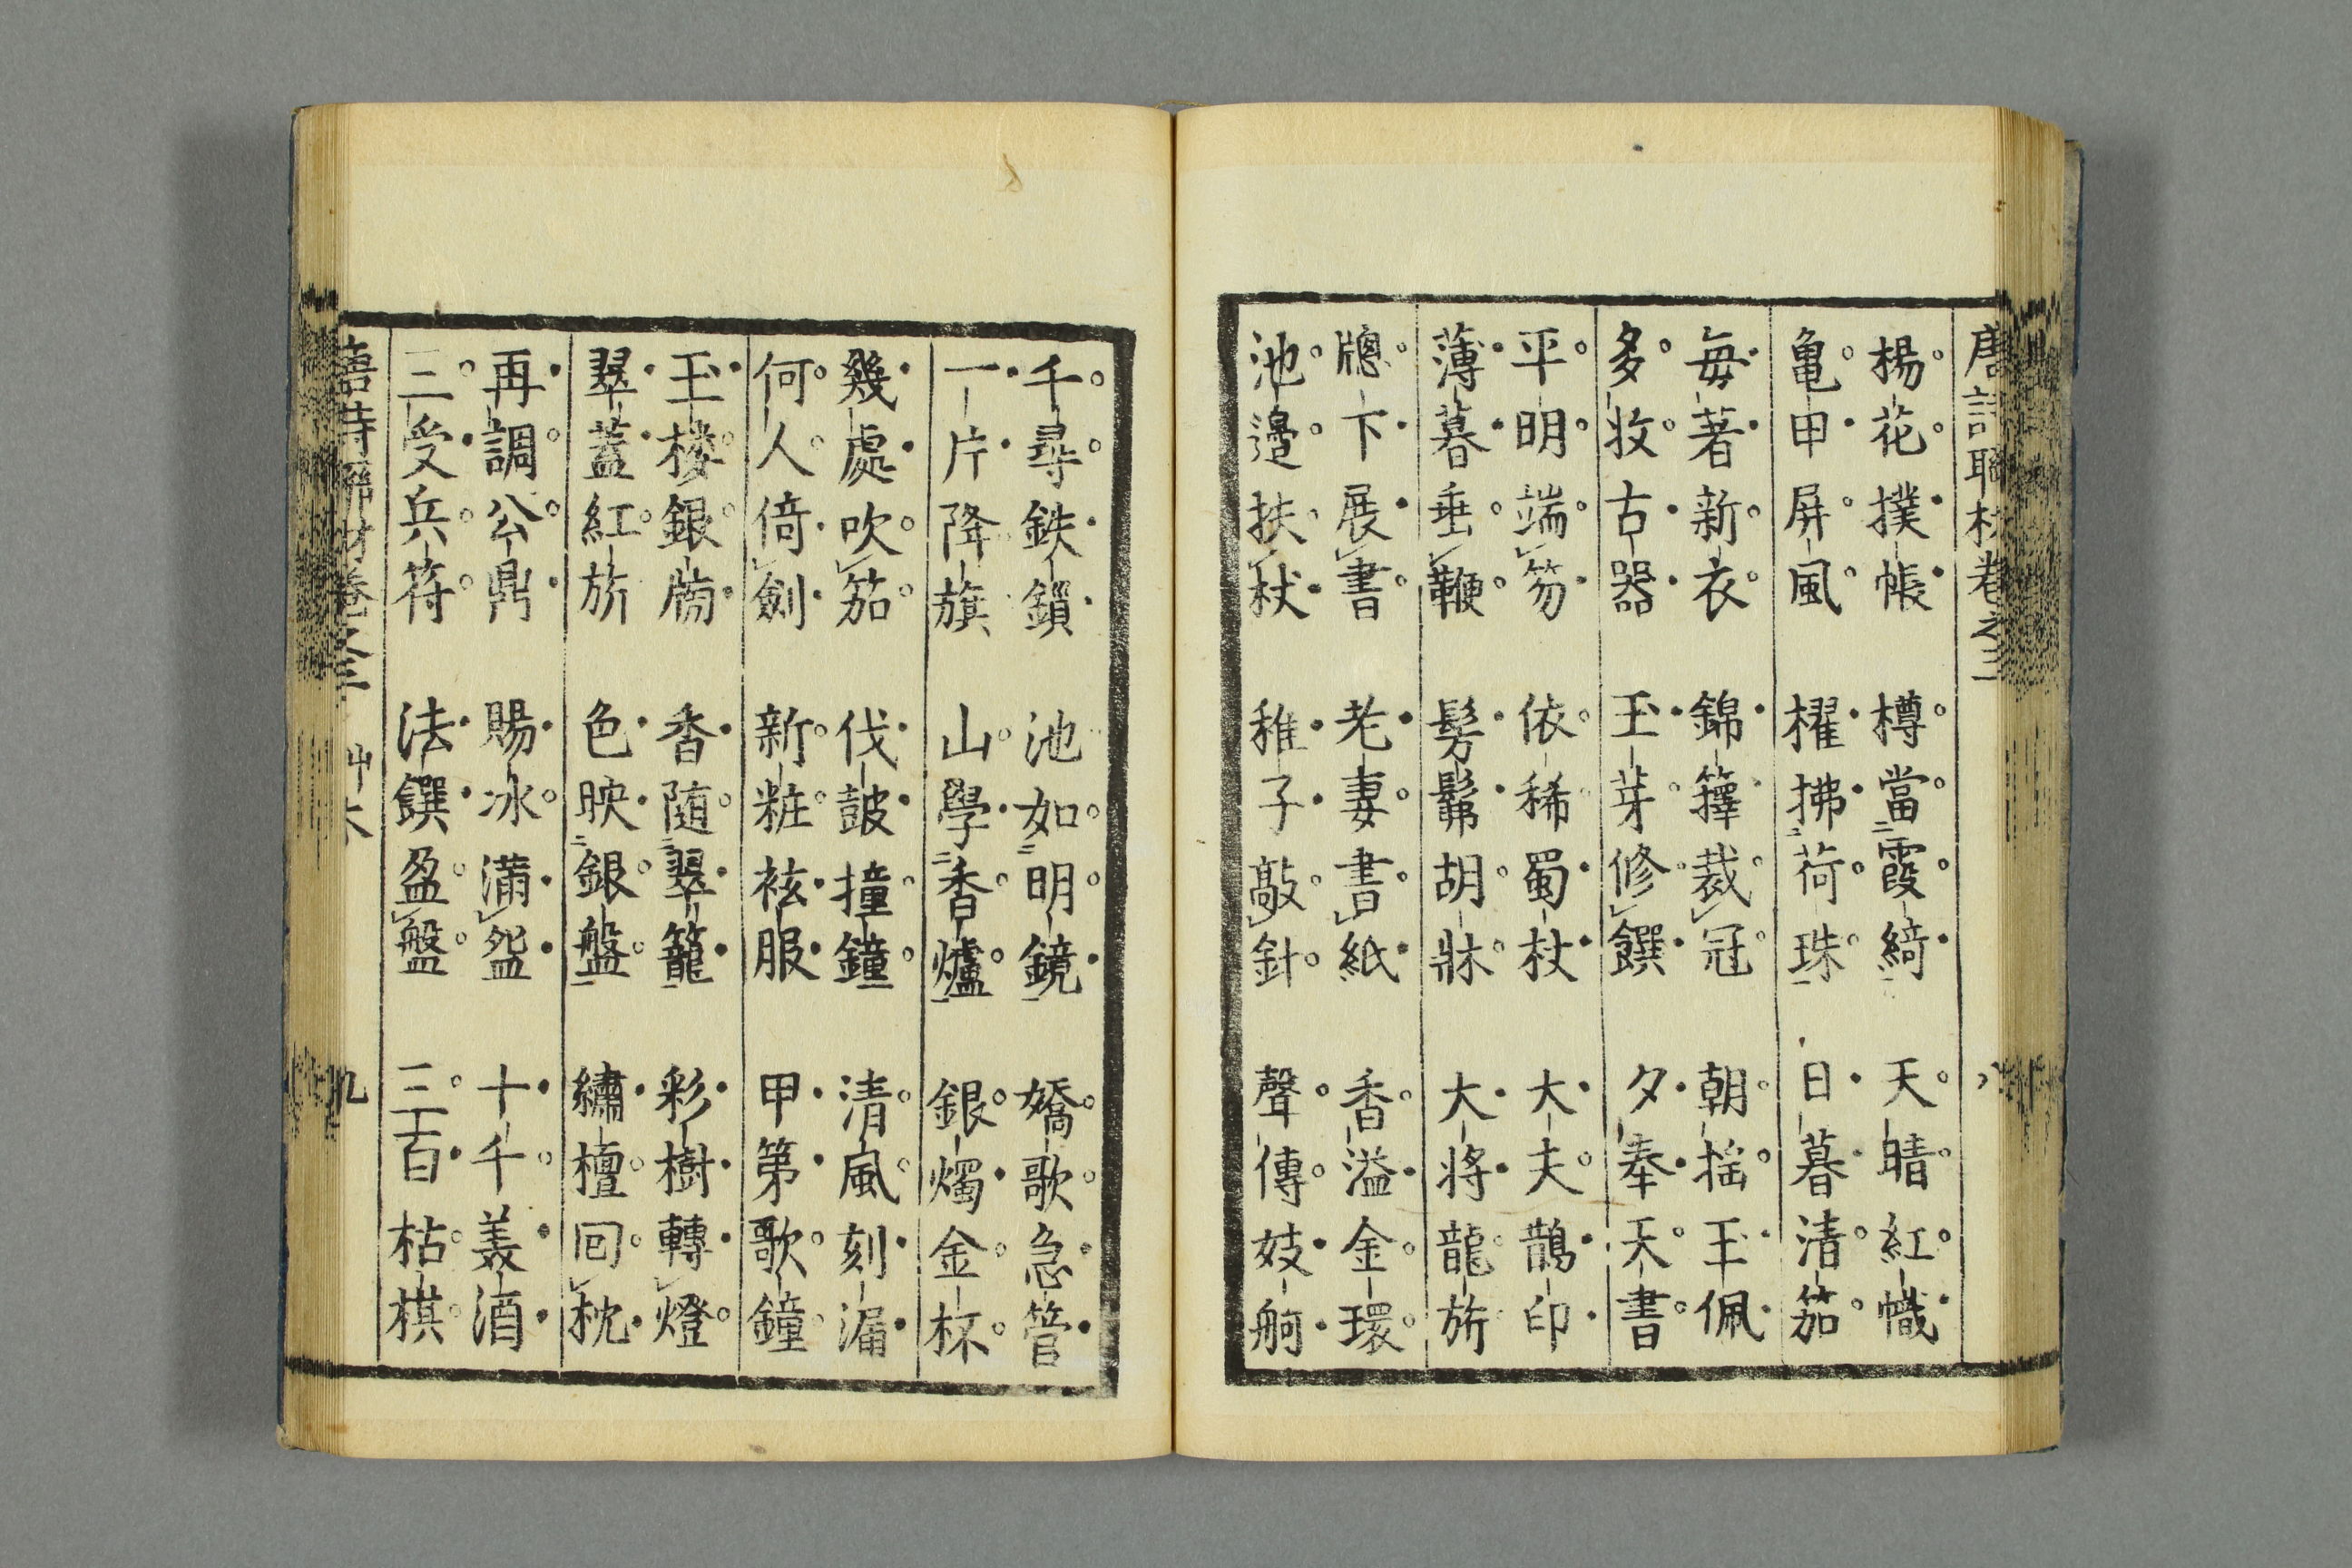 唐詩聯材卷之三 八
楊花撲帳 樽當霞綺 天晴紅幟
亀甲屏風 櫂拂荷珠 日暮清笳
毎著新衣 錦籜裁冠 朝揺玉佩
多收古器 玉芽修饌 夕奉天書
平明端笏 依稀蜀杖 大夫鵲印
薄暮垂鞭 髣髴胡牀 大将龍旂
牕下展書 老妻書紙 香溢金環
池邉扶杖 稚子敲針 聲傳妓舸
千尋鉄鎖 池如明鏡 嬌歌急管
一片降旗 山學香爐 銀燭金杯
幾處吹笳 伐鼓撞鐘 清風刻漏
何人倚劍 新粧袨服 甲第歌鐘
玉楼銀牓 香随翠籠 彩樹轉燈
翠蓋紅旂 色映銀盤 繡檀回枕
再調公鼎 賜冰満盌 十千美酒
三受兵符 法饌盈盤 三百枯棋
唐詩聯材卷之三 艸木 九